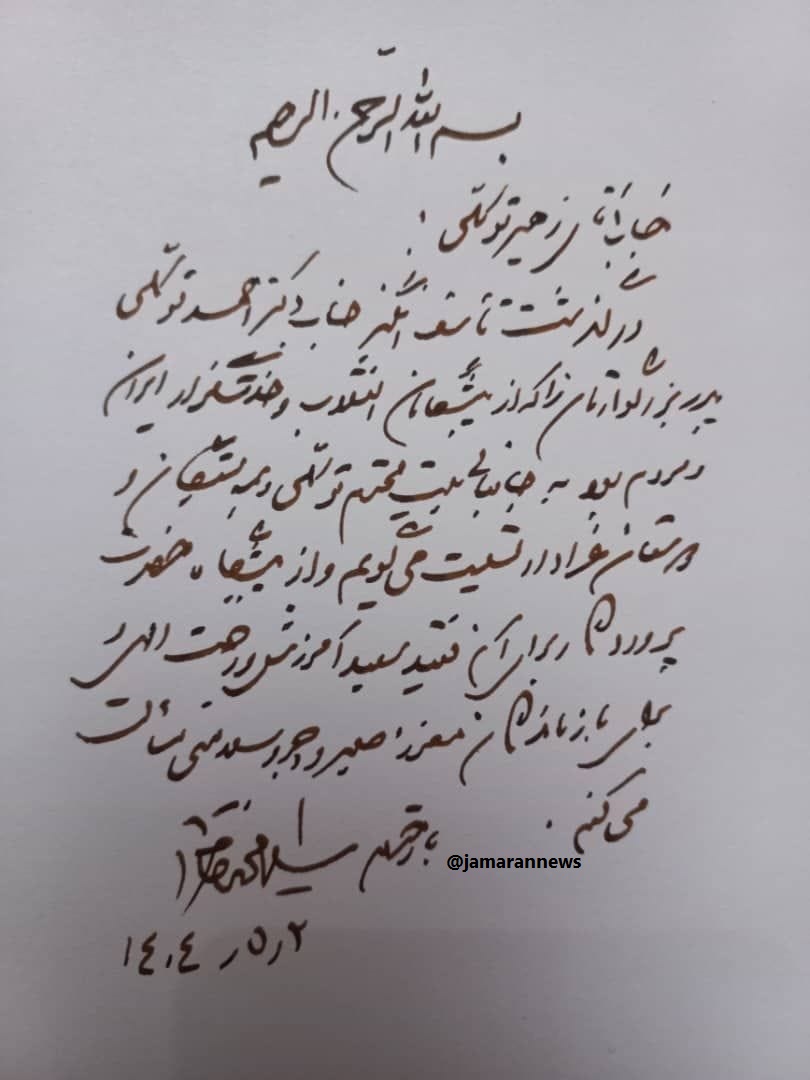 بسم الله الرّحمن الرحیم
جناب آقای زهیر توکّلی
درگذشت تأسف انگیز جناب دکتر احمد توکّلی
پدر بزرگوارتان را که از پیشگامان انقلاب و خدمتگزار ایران
و مردم بود به جنابعالی بیت محترم توکّلی و همه بستگان و
دوستان عزادار تسلیت می گویم و از پیشگاه حضرت
پروردگار برای آن فقید سعید آمرزش و رحمت الهی و
برای بازماندگان معزز صبر و اجر و سلامتی مسألت
می کنم.
با احترام سید محمد خاتمی
@jamarannews
۱۴۰۴ ر ۵ ر ۲